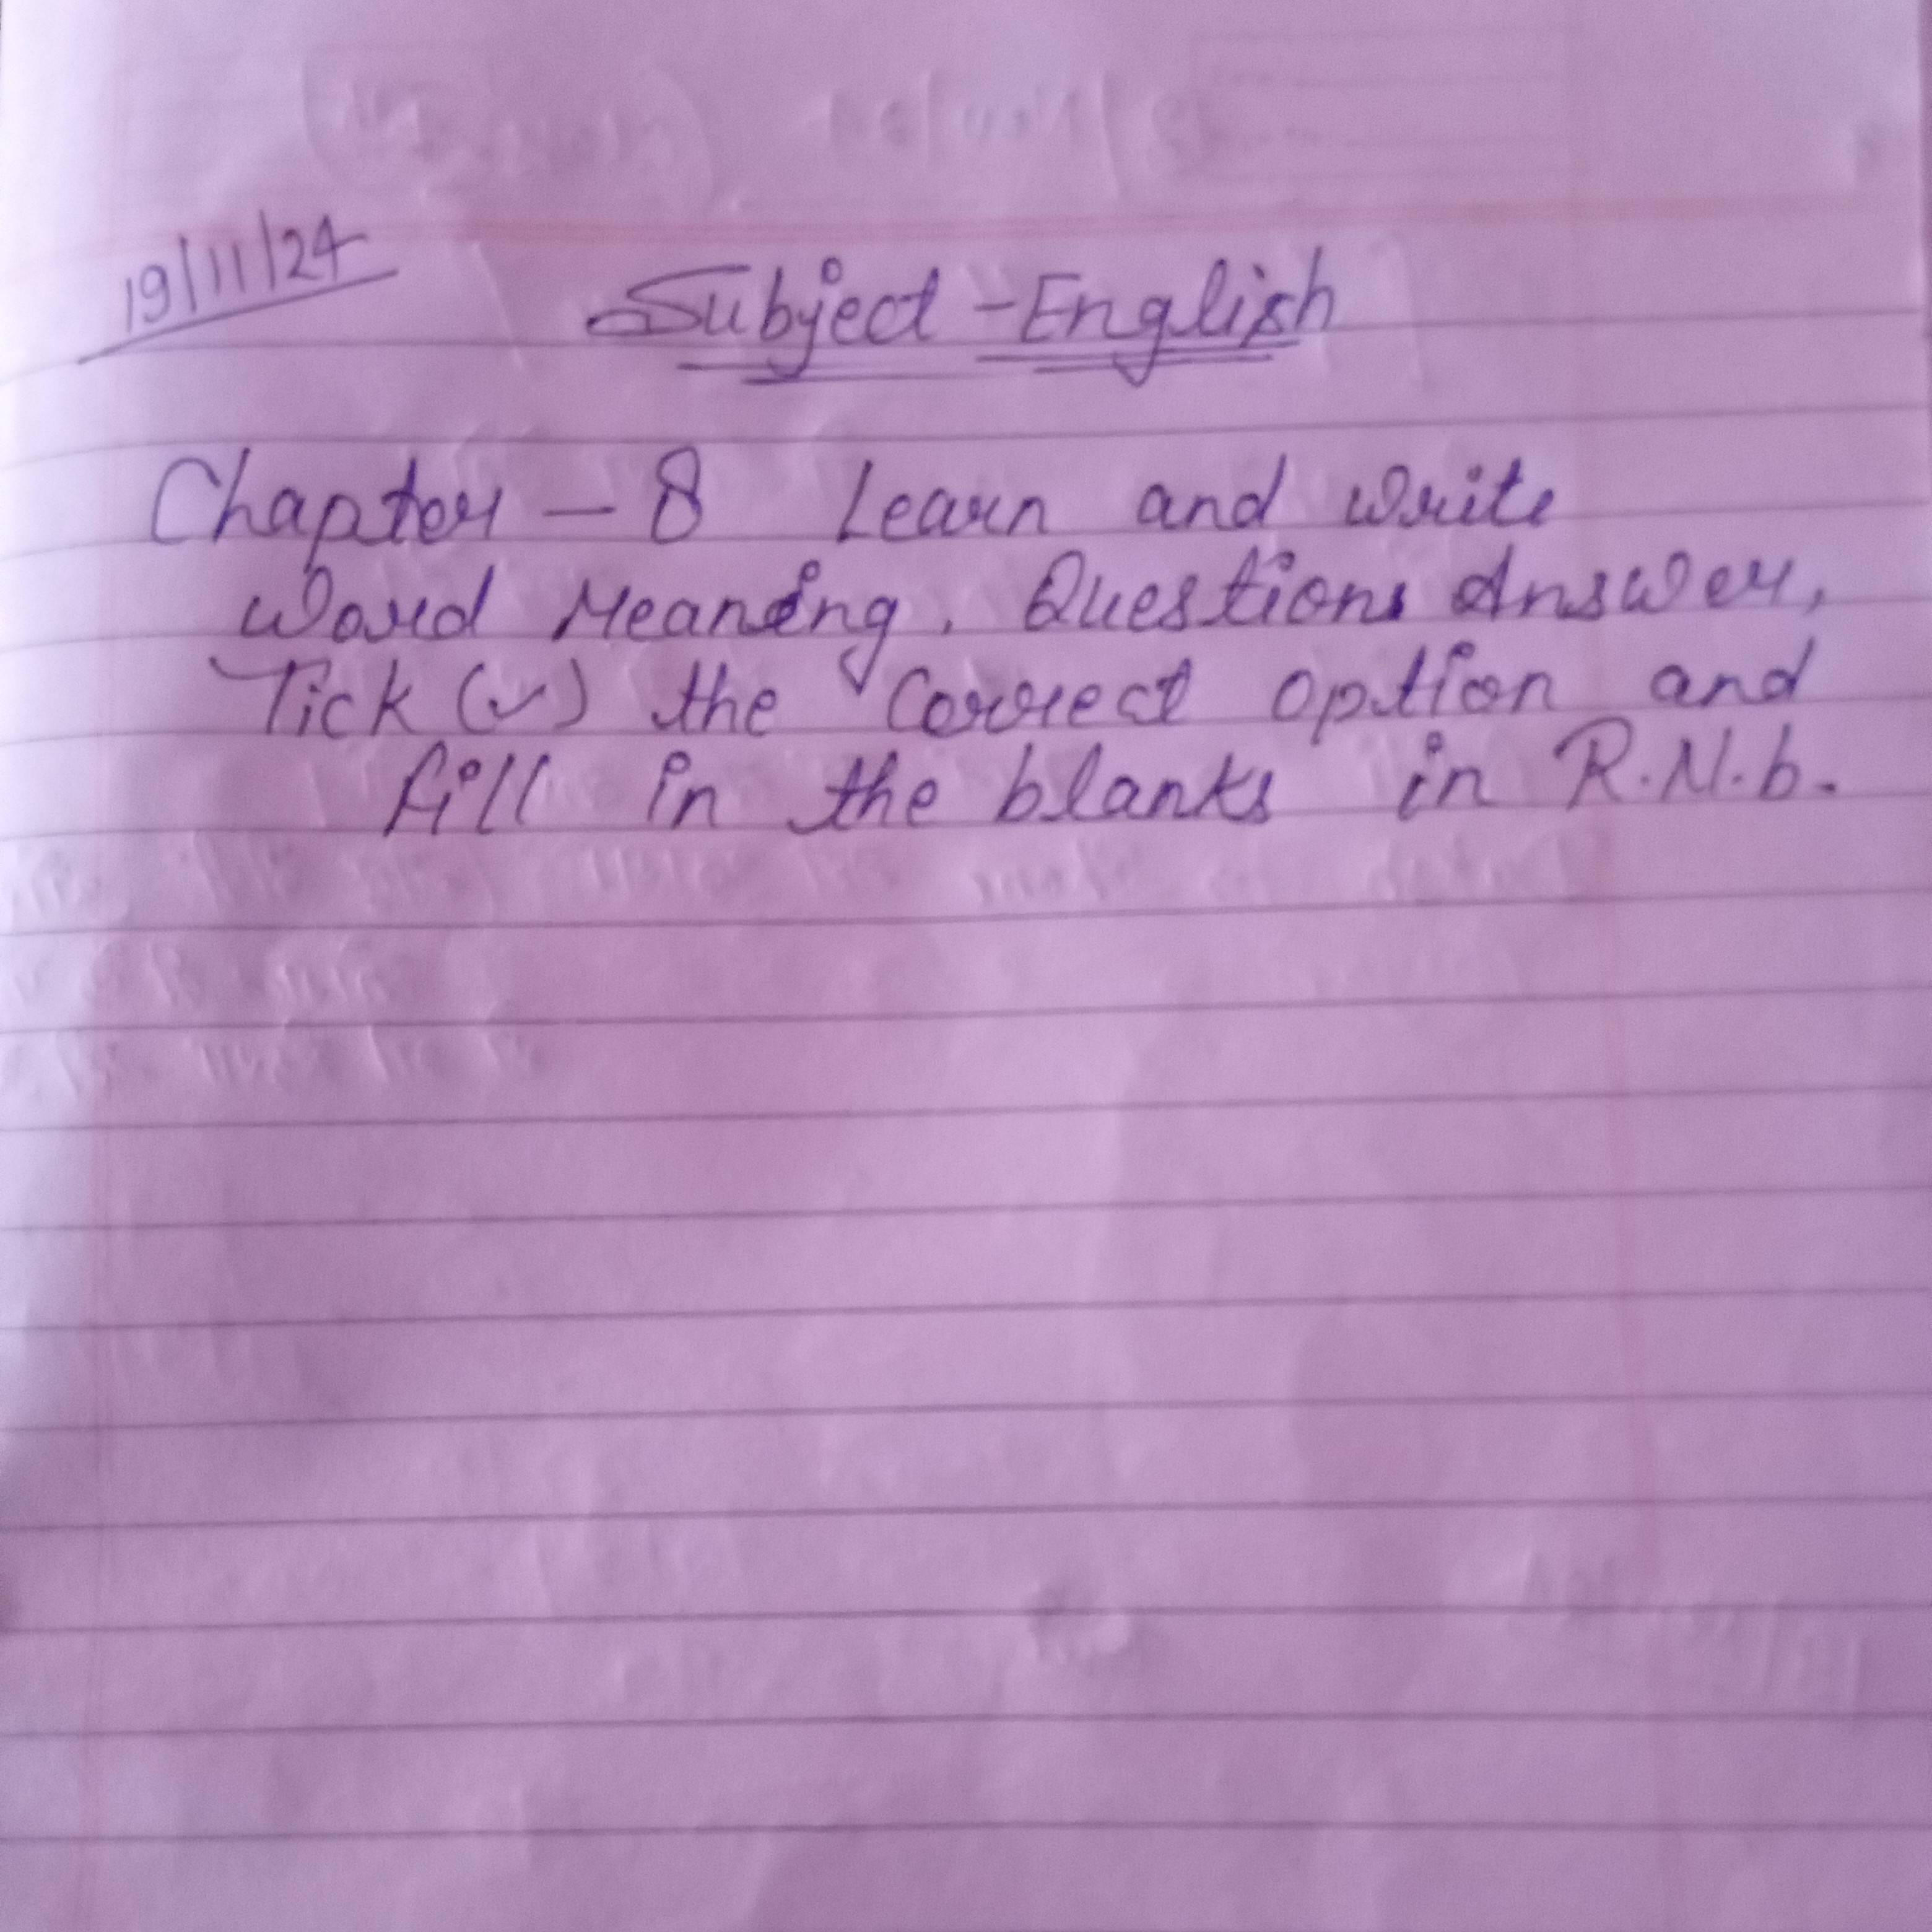 19/11/24
Subject - English
Chapter - 8 Learn and write
Word Meaning. Questions Answer,
Tick (✓) the Correct option and
fill in the blanks in R.N.b.